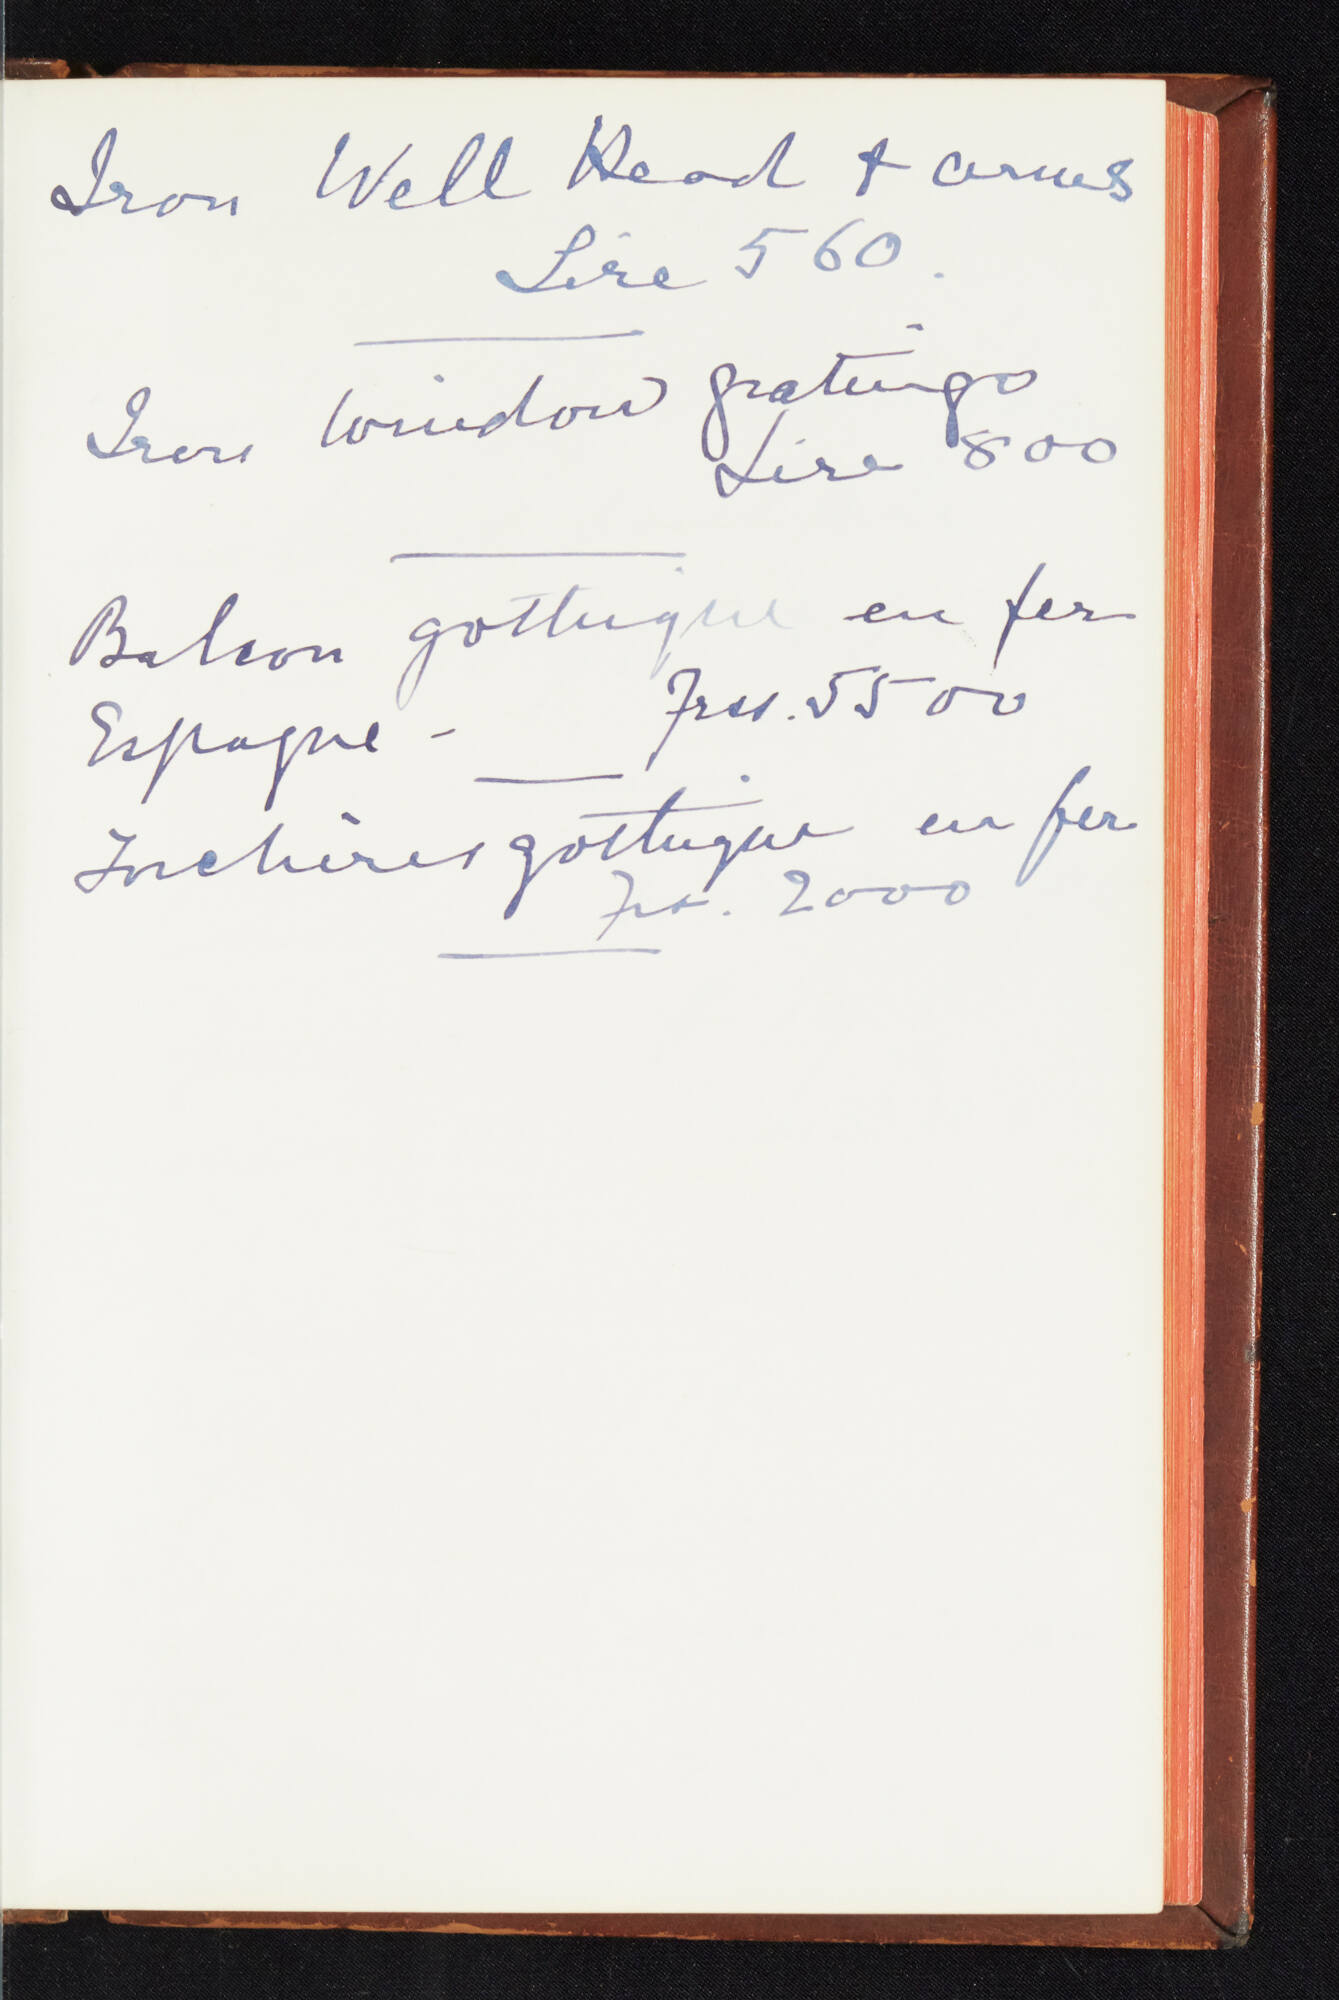 Iron Well Head & arms
Lire 560.
Iron window gratings
Lire 800
Balcon gothique en fer
Espagne - Frcs. 5500
Torchères gothique en fer
Frs. 2000